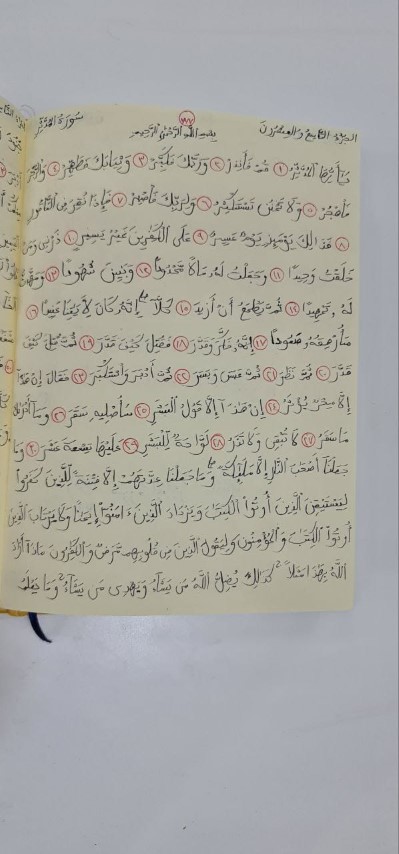 الجزء التاسع والعشرون
سورة المدثر
بسم الله الرحمن الرحيم
يَا أَيُّهَا الْمُدَّثِّرُ ١ قُمْ فَأَنذِرْ ٢ وَرَبَّكَ فَكَبِّرْ ٣ وَثِيَابَكَ فَطَهِّرْ ٤ وَالرُّجْزَ
فَاهْجُرْ ٥ وَلَا تَمْنُن تَسْتَكْثِرُ ٦ وَلِرَبِّكَ فَاصْبِرْ ٧ فَإِذَا نُقِرَ فِي النَّاقُورِ
٨ فَذَٰلِكَ يَوْمَئِذٍ يَوْمٌ عَسِيرٌ ٩ عَلَى الْكَافِرِينَ غَيْرُ يَسِيرٍ ١٠ ذَرْنِي وَمَنْ
خَلَقْتُ وَحِيدًا ١١ وَجَعَلْتُ لَهُ مَالًا مَّمْدُودًا ١٢ وَبَنِينَ شُهُودًا ١٣ وَمَهَّدتُّ
لَهُ تَمْهِيدًا ١٤ ثُمَّ يَطْمَعُ أَنْ أَزِيدَ ١٥ كَلَّا إِنَّهُ كَانَ لِآيَاتِنَا عَنِيدًا ١٦
سَأُرْهِقُهُ صَعُودًا ١٧ إِنَّهُ فَكَّرَ وَقَدَّرَ ١٨ فَقُتِلَ كَيْفَ قَدَّرَ ١٩ ثُمَّ قُتِلَ كَيْفَ
قَدَّرَ ٢٠ ثُمَّ نَظَرَ ٢١ ثُمَّ عَبَسَ وَبَسَرَ ٢٢ ثُمَّ أَدْبَرَ وَاسْتَكْبَرَ ٢٣ فَقَالَ إِنْ هَٰذَا
إِلَّا سِحْرٌ يُؤْثَرُ ٢٤ إِنْ هَٰذَا إِلَّا قَوْلُ الْبَشَرِ ٢٥ سَأُصْلِيهِ سَقَرَ ٢٦ وَمَا أَدْرَاكَ
مَا سَقَرُ ٢٧ لَا تُبْقِي وَلَا تَذَرُ ٢٨ لَوَّاحَةٌ لِّلْبَشَرِ ٢٩ عَلَيْهَا تِسْعَةَ عَشَرَ ٣٠ وَمَا
جَعَلْنَا أَصْحَابَ النَّارِ إِلَّا مَلَائِكَةً وَمَا جَعَلْنَا عِدَّتَهُمْ إِلَّا فِتْنَةً لِّلَّذِينَ كَفَرُوا
لِيَسْتَيْقِنَ الَّذِينَ أُوتُوا الْكِتَابَ وَيَزْدَادَ الَّذِينَ آمَنُوا إِيمَانًا وَلَا يَرْتَابَ الَّذِينَ
أُوتُوا الْكِتَابَ وَالْمُؤْمِنُونَ وَلِيَقُولَ الَّذِينَ فِي قُلُوبِهِم مَّرَضٌ وَالْكَافِرُونَ مَاذَا أَرَادَ
اللَّهُ بِهَٰذَا مَثَلًا كَذَٰلِكَ يُضِلُّ اللَّهُ مَن يَشَاءُ وَيَهْدِي مَن يَشَاءُ وَمَا يَعْلَمُ